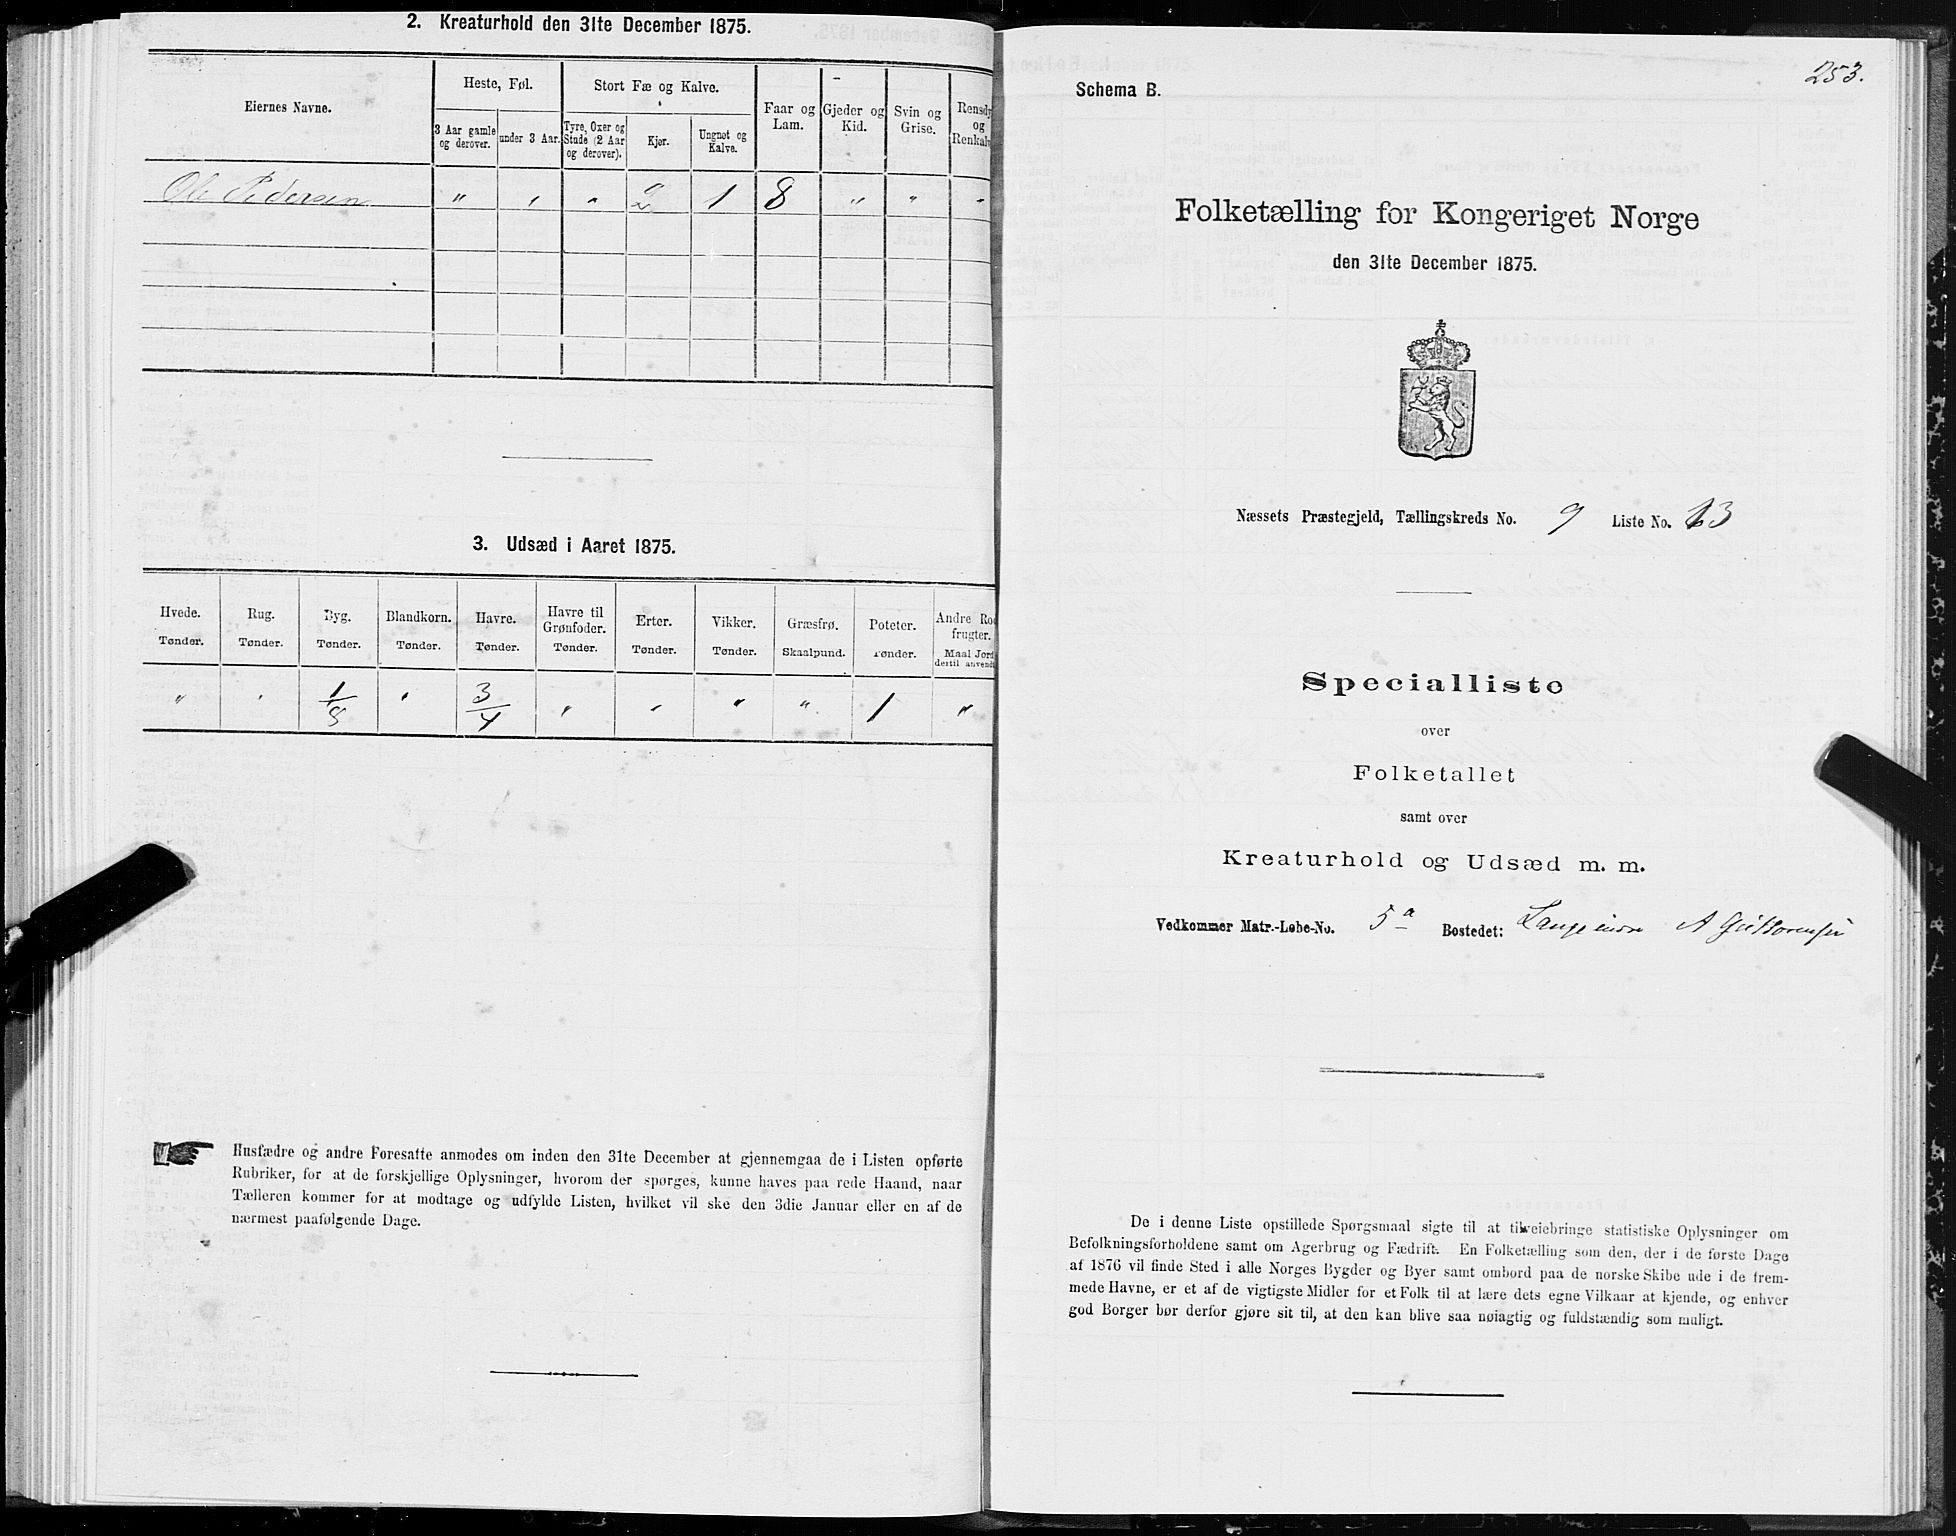 2. Kreaturhold den 31te December 1875.
Eiernes Navne.
Heste, Føl.
Stort Fæ og Kalve.
Faar og
Lam.
Gjeder og
Kid.
Svin og
Grise.
Rensdy
og
Renkalv
3 Aar gamle
og derover.
under 3 Aar.
Tyre, Oxer og
Stude (2 Aar
og derover).
Kjør.
Ungnøt og
Kalve.
Ole Pedersen " " " 2 1 8 " " "
3. Udsæd i Aaret 1875.
Hvede. Rug. Byg. Blandkorn. Havre. Havre til
Grønfoder. Erter. Vikker. Græsfrø. Poteter. Andre Ro
frugter.
Tønder. Tønder. Tønder. Tønder. Tønder. Tønder. Tønder. Tønder. Skaalpund. Tønder. Maal Jord
dertil anvend
" " 1/8 " 3/4 " " " " 1 "
Husfædre og andre Foresatte anmodes om inden den 31te December at gjennemgaa de i Listen opførte
Rubriker, for at de forskjellige Oplysninger, hvorom der spørges, kunne haves paa rede Haand, naar
Tælleren kommer for at modtage og udfylde Listen, hvilket vil ske den 3die Januar eller en af de
nærmest paafølgende Dage.
253.
Schema B.
Folketælling for Kongeriget Norge
den 31te December 1875.
Næssets Præstegjeld, Tællingskreds No. 9 Liste No. 13
Specialliste
over
Folketallet
samt over
Kreaturhold og Udsæd m. m.
Vedkommer Matr.-Løbe-No. 5a Bostedet: Lange
De i denne Liste opstillede Spørgsmaal sigte til at tilveiebringe statistiske Oplysninger om
Befolkningsforholdene samt om Agerbrug og Fædrift. En Folketælling som den, der i de første Dage
af 1876 vil finde Sted i alle Norges Bygder og Byer samt ombord paa de norske Skibe ude i de frem-
mede Havne, er et af de vigtigste Midler for et Folk til at lære dets egne Vilkaar at kjende, og enhver
god Borger bør derfor gjøre sit til, at den kan blive saa nøiagtig og fuldstændig som muligt.